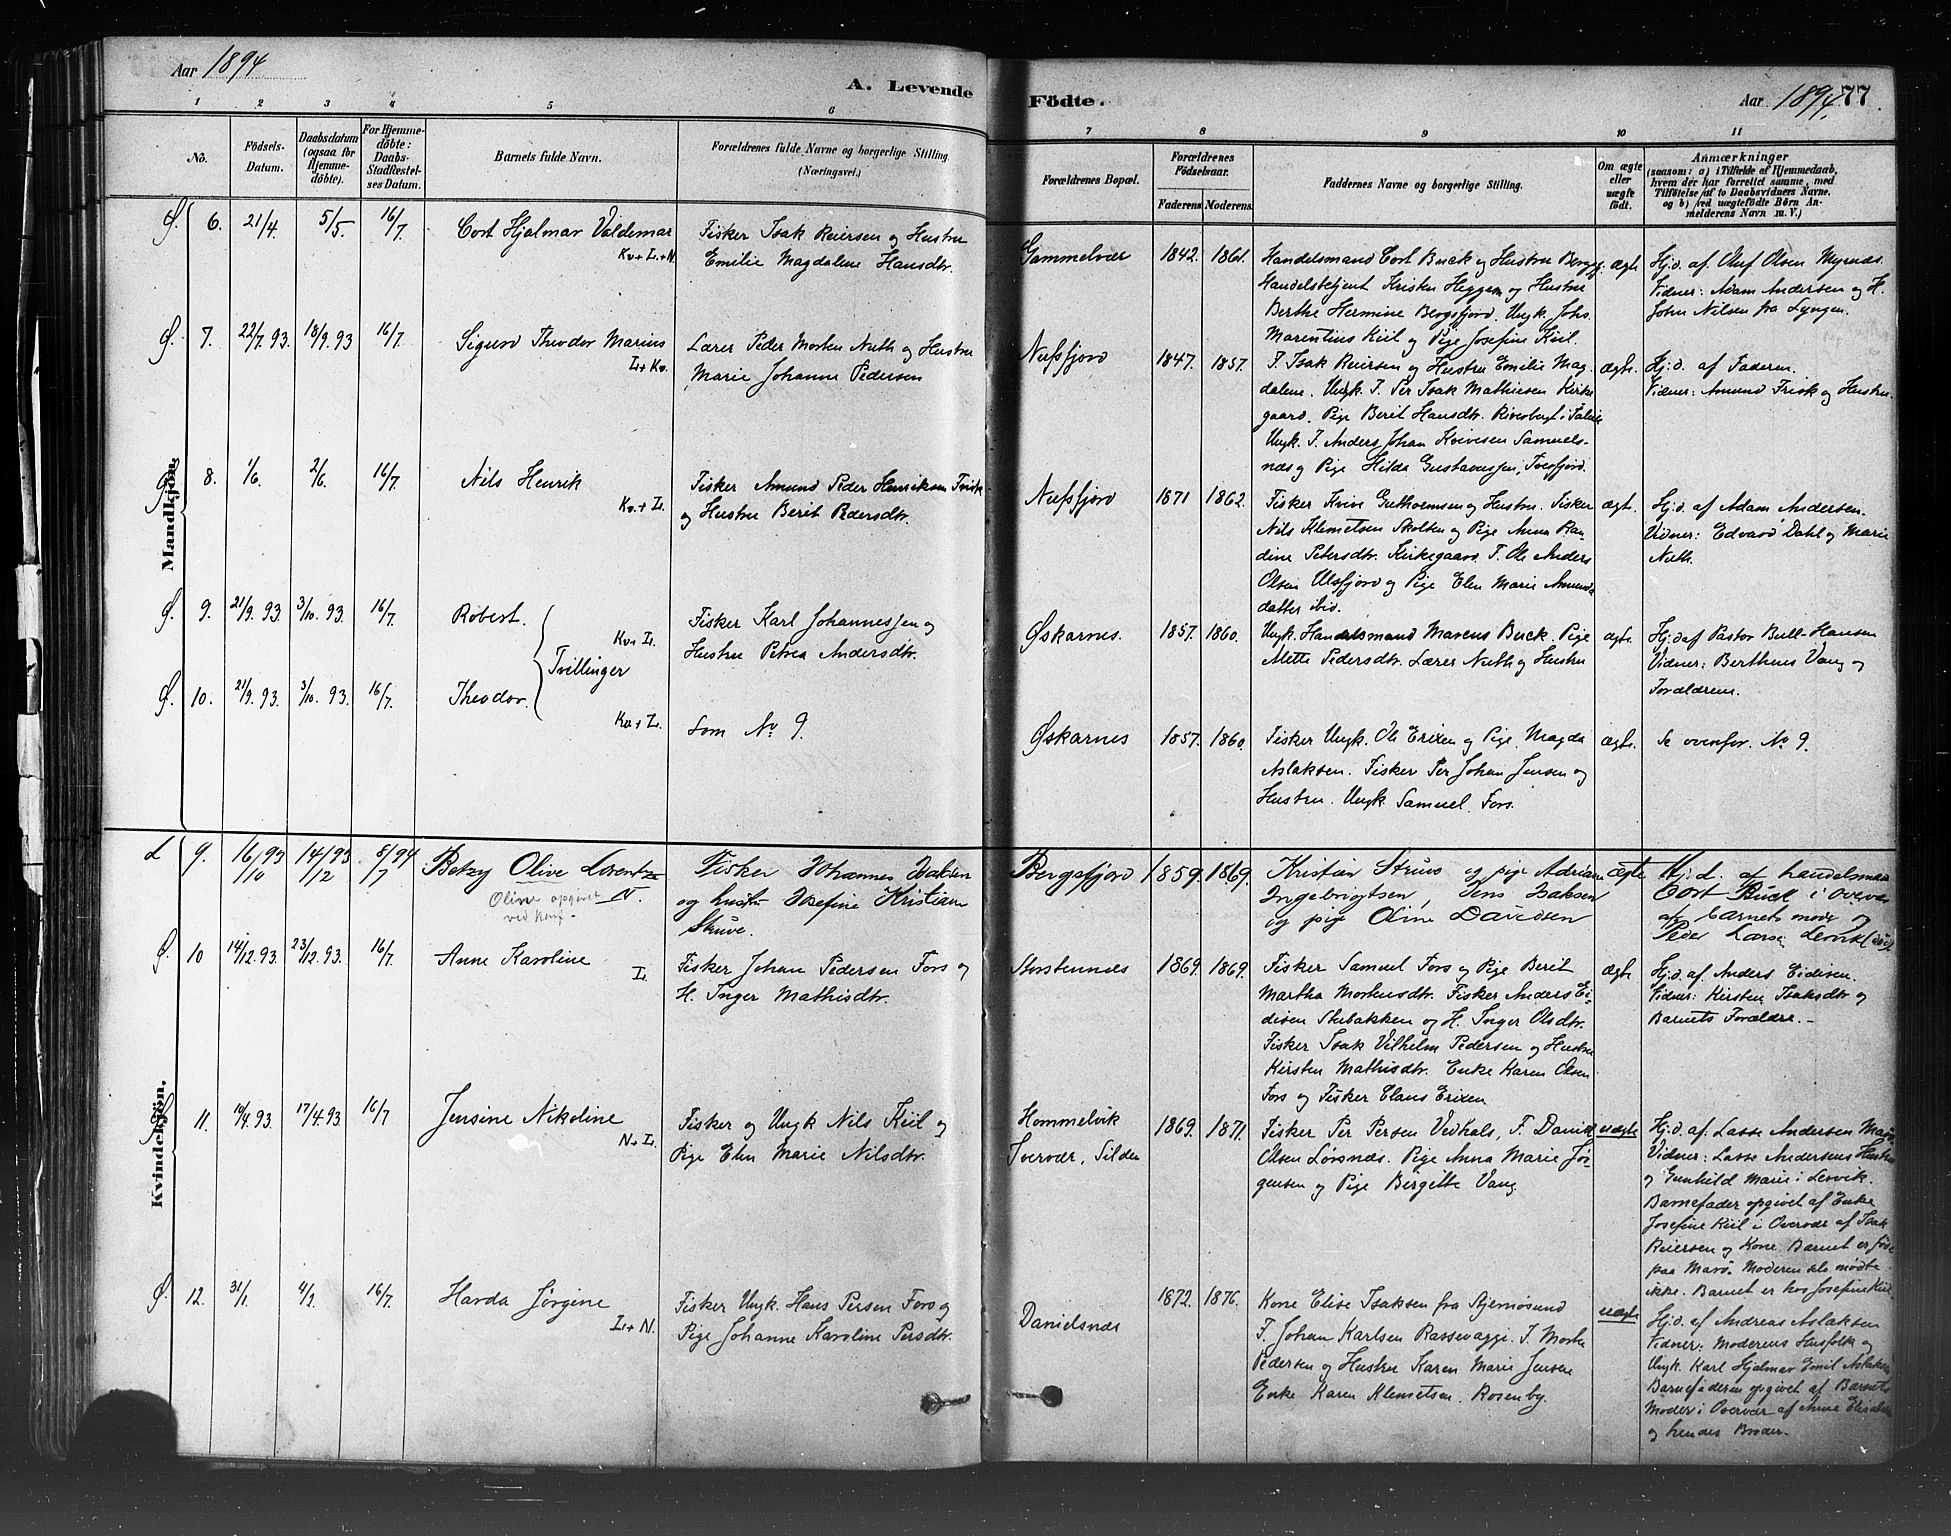 Aar 1894
A. Levende
Födte.
Aar 1894. 77
1 2 3 4 5 6 7 8 9 10 11
Nö.
Födsels-
Datum.
Daabsdatum
(ogsaa for
Hjemme-
döbte).
For Hjemme-
döbte:
Daabs-
Stadfæstel-
ses Datum.
Barnets fulde Navn.
Forældrenes fulde Navne og borgerlige Stilling.
(Næringsvei.)
Forældrenes Bopæl.
Forældrenes
Födselsaar.
Faderens. Moderens.
Faddernes Navne og borgerlige Stilling.
Om ægte
eller
uægte
födt.
Anmærkninger
(saasom: a) i Tilfælde af Hjemmedaab,
hvem der har forrettet samme, med
Tilföielse af to Daabsvidners Navne,
og b) ved uægtefödte Börn An-
melderens Navn m. V.)
Mandkjön.
Ø. 6. 21/4. 5/5. 16/7. Cort Hjalmar Valdemar
Kv + L + N
Fisker Isak Reiersen og Hustru
Emilie Magdalene Hansdtr.
Gammelvær 1842. 1861.
Handelsmand Cort Buck og Hustru Bergfj:
Handelsbetjent Kristen Heggen og Hustru
Berthe Hermine Bergsfjord. Ungk. Johs.
Marentius Kiil og Pige Josefine Kiil.
ægte
Hj.d. af Oluf Olsen Myrnes.
Vidner: Adam Andersen og H.
John Nilsen fra Lyngen.
Ø. 7. 22/7. 93. 18/9. 93 16/7. Sigurd Theodor Marius
L + Kv.
Lærer Peder Morten Nuth og Hustru
Marie Johanne Pedersen
Nufsfjord 1847. 1857.
F. Isak Reiersen og Hustru Emilie Mag
dalene. Ungk. F. Per Isak Mathisen Kirke
gaard. Pige Berit Hansdtr.
Ungk. F. Anders Johan Kvivesen Samuels-
næs og Pige Hilda Gustavussen,
ægte.
Hj.d. af Faderen.
Vidner: Amund Frisk og Hustru.
Ø. 8. 1/6. 2/6. 16/7. Nils Henrik
Kv. + L.
Fisker Amund Peder Henriksen Frisk
og Hustru Berit Pedersdtr.
Nufsfjord 1871 1862.
Fisker Kvive Guttormsen og Hustru. Fisker
Nils Klemetsen Skolten og Pige Anna Ran
dine Petersdtr. Kirkegaard F. Ole Anders
Olsen Ulsfjord og Pige Elen Marie Amunds
datter ibid.
ægte.
Hj.d. af Adam Andersen.
Vidner: Edvard Dahl og Marie
Nuth.
Ø. 9. 21/9. 93. 3/10. 93. 16/7. Robert.
Kv + L.
Tvillinger
Fisker Karl Johannessen og
Hustru Petrea Andersdtr.
Øskarnes. 1857. 1860.
Ungk. Handelsmand Marens Buck. Pige
Mette Pedersdtr. Lærer Nuth og Hustru
ægte.
Hj.d af Pastor Bull-Hansen
Vidner: Bertheus Vang og
Forældrene.
Ø. 10. 21/9. 93. 3/10. 93. 16/7. Theodor.
Kv + L.
Som No 9.
Øskarnes 1857. 1860.
Fisker Ungk. Ole Erixen og Pige Magda
Aslaksen. Fisker Per Johan Jensen og
Hustru. Ungk. Samuel Fors.
ægte.
Se ovenfor. No 9.
Kvindekjön.
L 9. 16/10 93 14/12 93 8/7 94 Betzy Olive Lorentze
N.
Olive opgivet
ved konf.
Fisker Johannes Isaksen
og hustr Josefine Kristiane
Struve.
Bergsfjord 1859. 1869.
Kristian Struve og pige Adriane
Ingebrigtsen, Jens Isaksen
og pige Oline Davidsen
ægte
Hj. d. af handelsman
Cort Buck i overvær
af barnets moder og
Peder Larsen Lervik
Ø. 10 14/12. 93. 23/12. 93. 16/7. Anne Karoline
L.
Fisker Johan Pedersen Fors og
H. Inger Mathisdtr.
Storstennæs 1869. 1869.
Fisker Samuel Fors og Pige Berit
Martha Mortensdtr. Fisker Anders Ei-
disen Stubakken og H. Inger Olsdtr.
Fisker Isak Vilhelm Pedersen og Hustru
Kirsten Mathisdtr. Enke Karen Olsen
Fors og Fisker Claus Erixen
ægte
Hj.d. af Anders Eidisen.
Vidner: Kirsten Isaksdtr og
Barnets Forældre.
Ø 11. 16/4. 93. 17/4. 93. 16/7 Jensine Nikoline
N + L.
Fisker og Ungk Nils Kiil og
Pige Elen Marie Nilsdtr.
Hommelvik
Iversvær, Silden
1869. 1871.
Fisker Per Persen Vedhals, F. Daniel
Olsen Lørsnæs. Pige Anna Marie Jør-
gensen og Pige Bergitte Vang
uægte
Hj.d. af: Lasse Andersen Marø.
Vidner: Lasse Andersens Hustru
og Gunhild Marie i Lervik.
Barnefader opgivet af Enke
Josefine Kiil i Overvær af Isak
Reiersen og Kone. Barnet er født
paa Marø. Moderen selv mødte
ikke. Barnet er hos Josefine Kiil.
Ø. 12. 31/1. 4/2. 16/7. Harda Jørgine
L + N.
Fisker Ungk. Hans Persen Fors og
Pige Johanne Karoline Persdtr.
Danielsnæs 1872. 1876.
Kone Elise Isaksen fra Stjernøsund
F. Johan Karlsen Rassevaggi. F. Morten
Pedersen og Hustru Karen Marie Jensen
Enke Karen Klemetsen. Rosenby.
uægte
Hj.d. af Andreas Aslaksen
Vidner: Moderens Husfolk og
Ungk. Karl Hjalmar Emil Aslaksen
Barnefaderen opgivet af Barnets
Moder i Overvær af Anne Elisabeth
og hendes Broder.